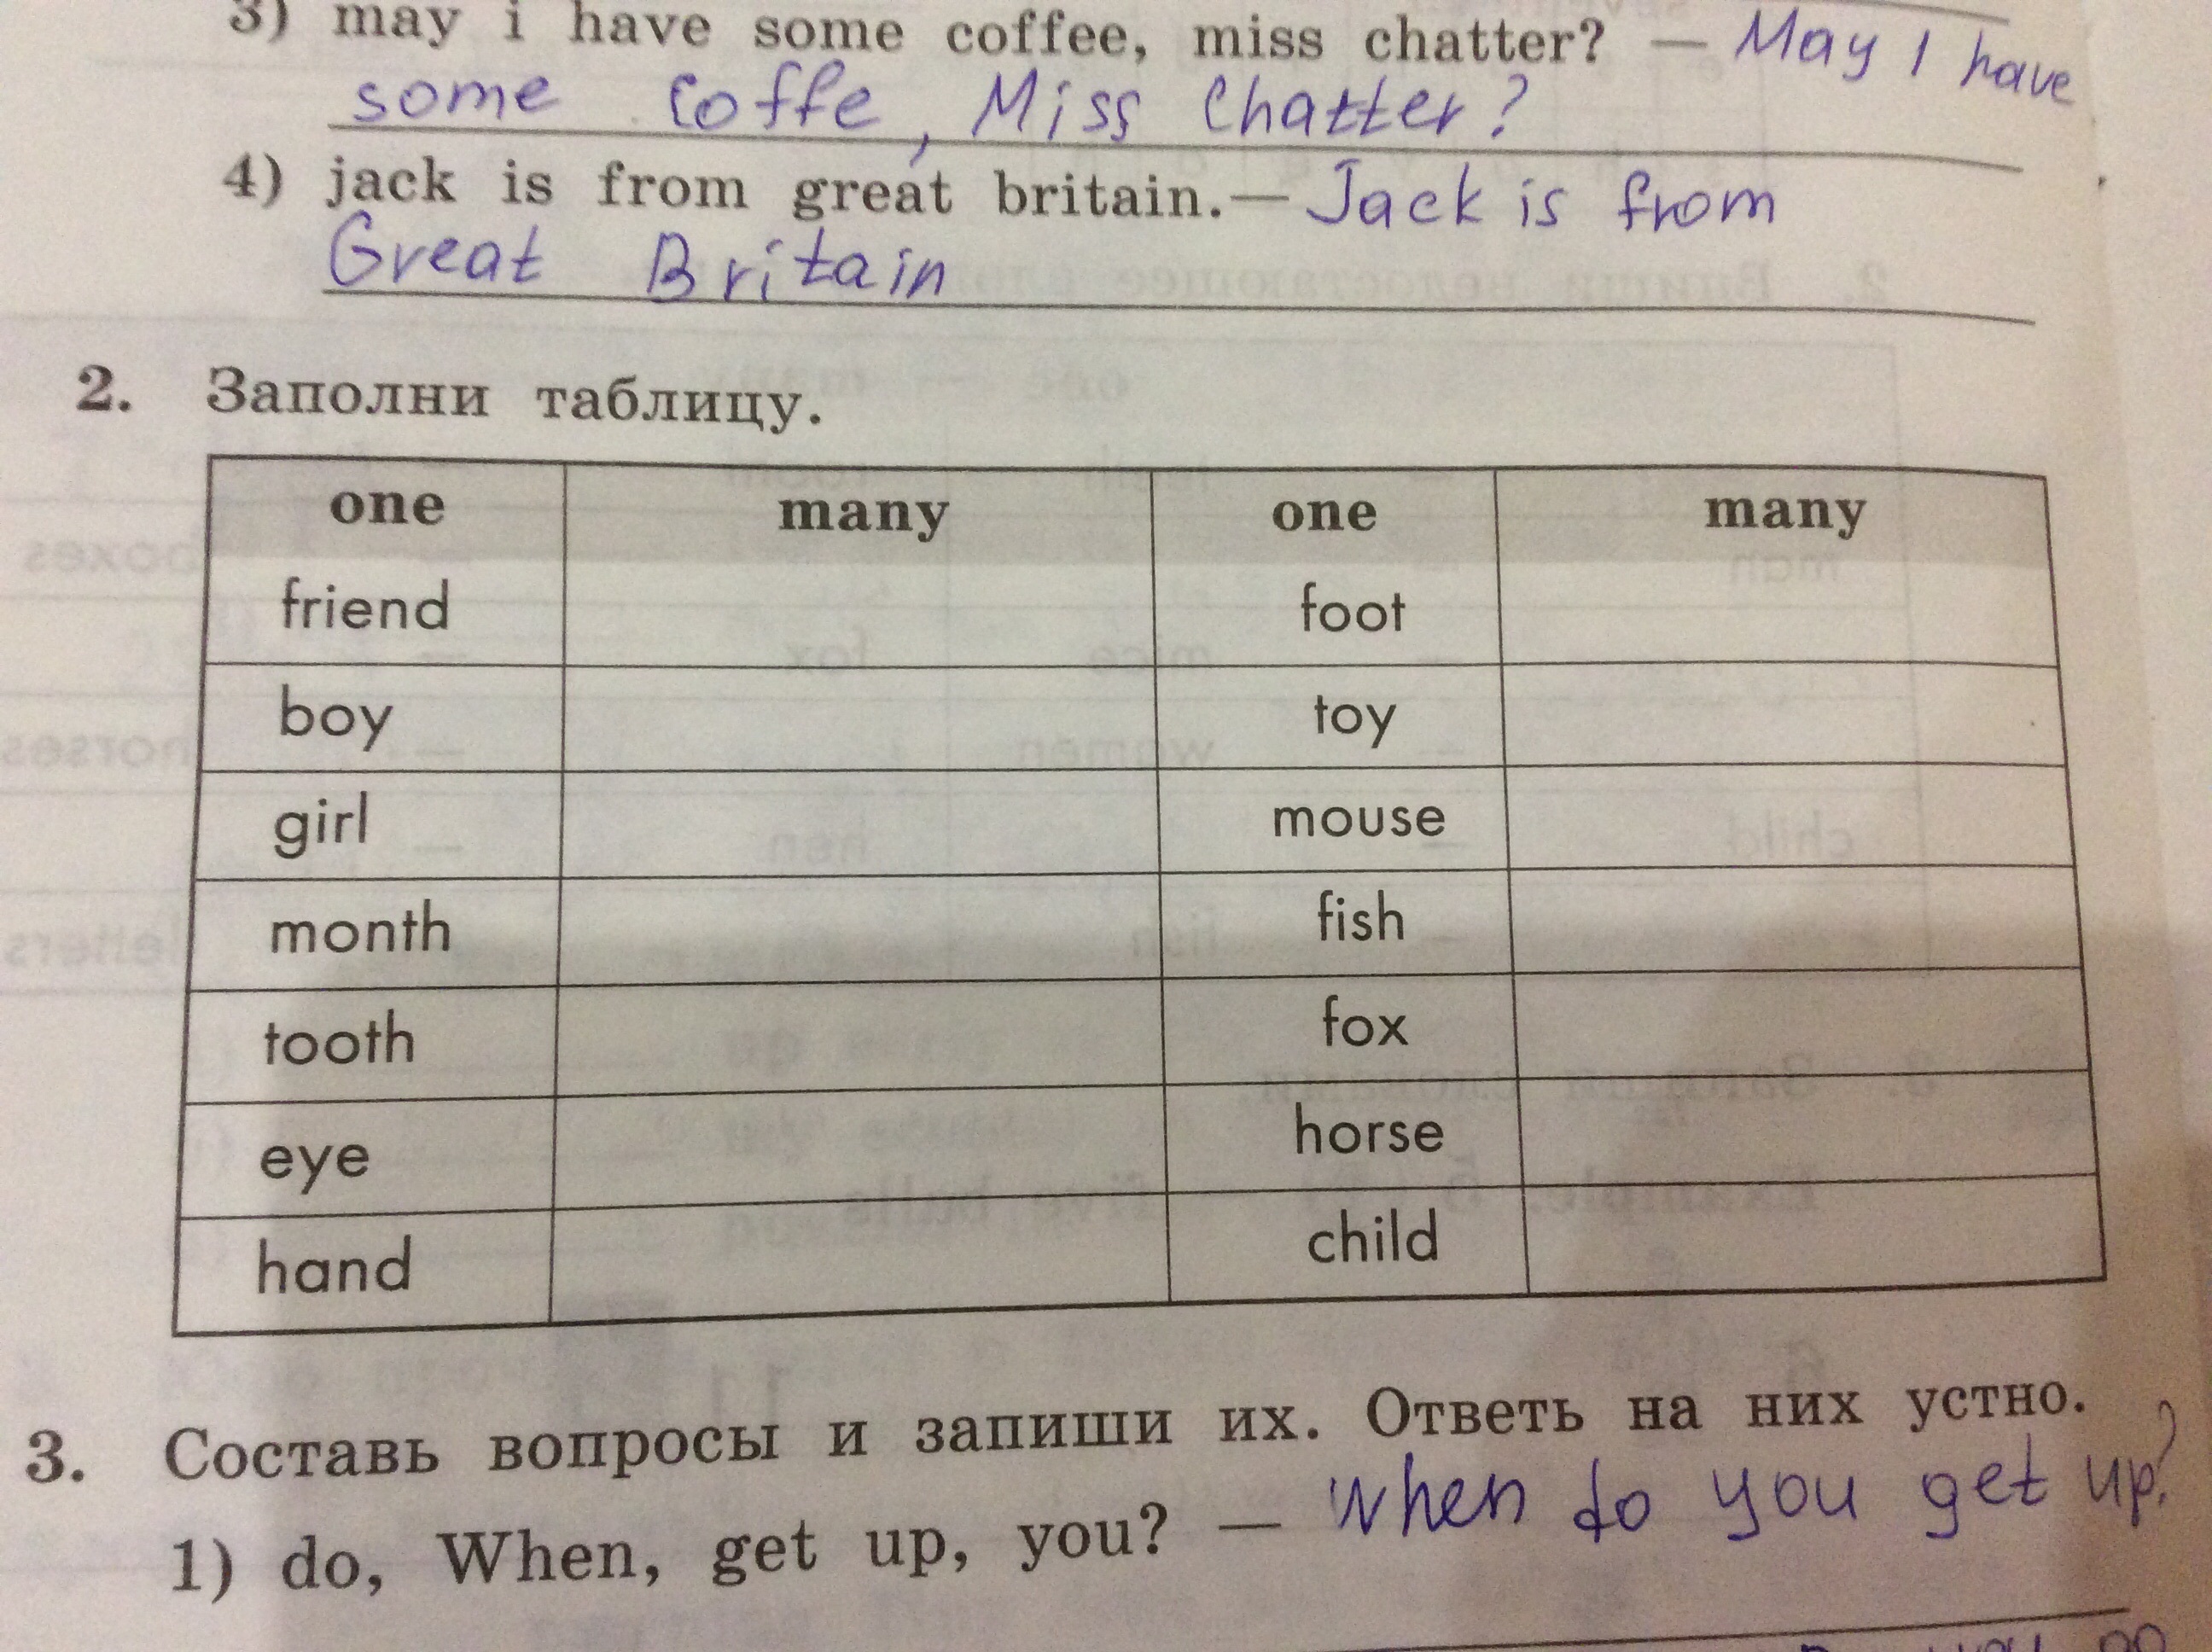 3) may i have some coffee, miss chatter? — May I have
some Coffe, Miss Chatter?
4) jack is from great britain. — Jack is from
Great Britain
2. Заполни таблицу.
one many one many
friend foot
boy toy
girl mouse
month fish
tooth fox
eye horse
hand child
3. Составь вопросы и запиши их. Ответь на них устно.
1) do, When, get up, you? — When do you get up?